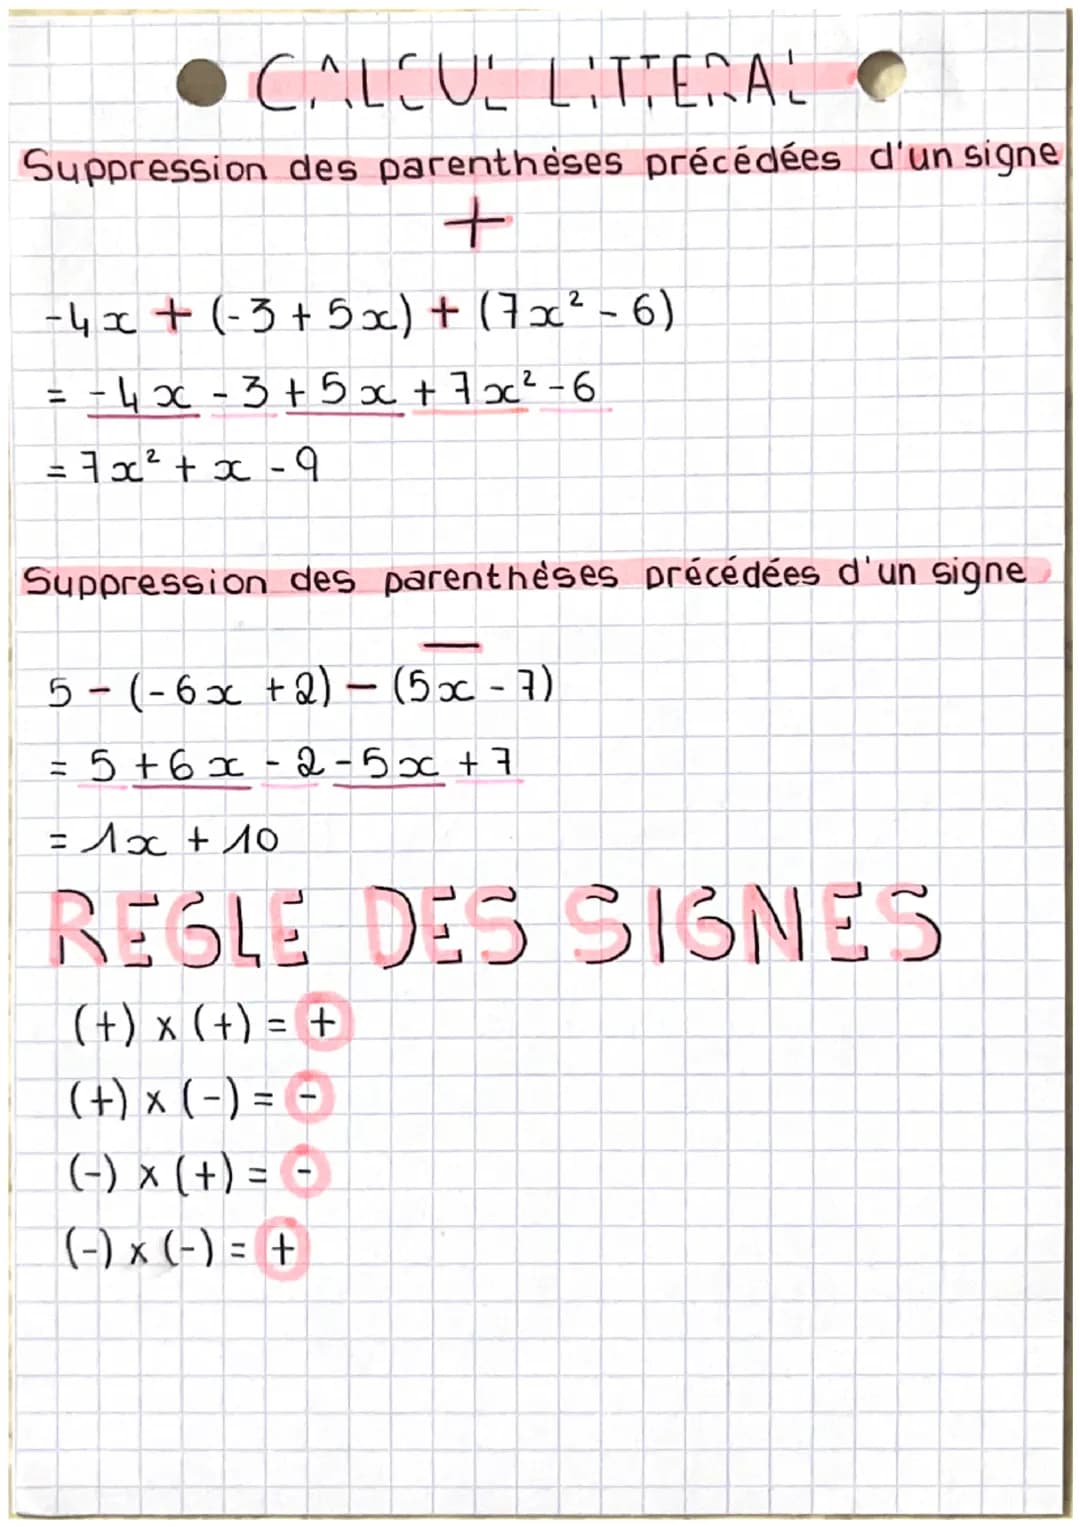 CALCUL LITTERAL
Suppression des parenthèses précédées d'un signe
+
-4x + (-3 + 5x) + (7x² - 6)
= -4x - 3 + 5x + 7x² - 6
= 7x² + x - 9
Suppression des parenthèses précédées d'un signe
—
5 - (-6x + 2) - (5x - 7)
= 5 + 6x - 2 - 5x + 7
= 1x + 10
REGLE DES SIGNES
(+) x (+) = +
(+) x (-) = -
(-) x (+) = -
(-) x (-) = +